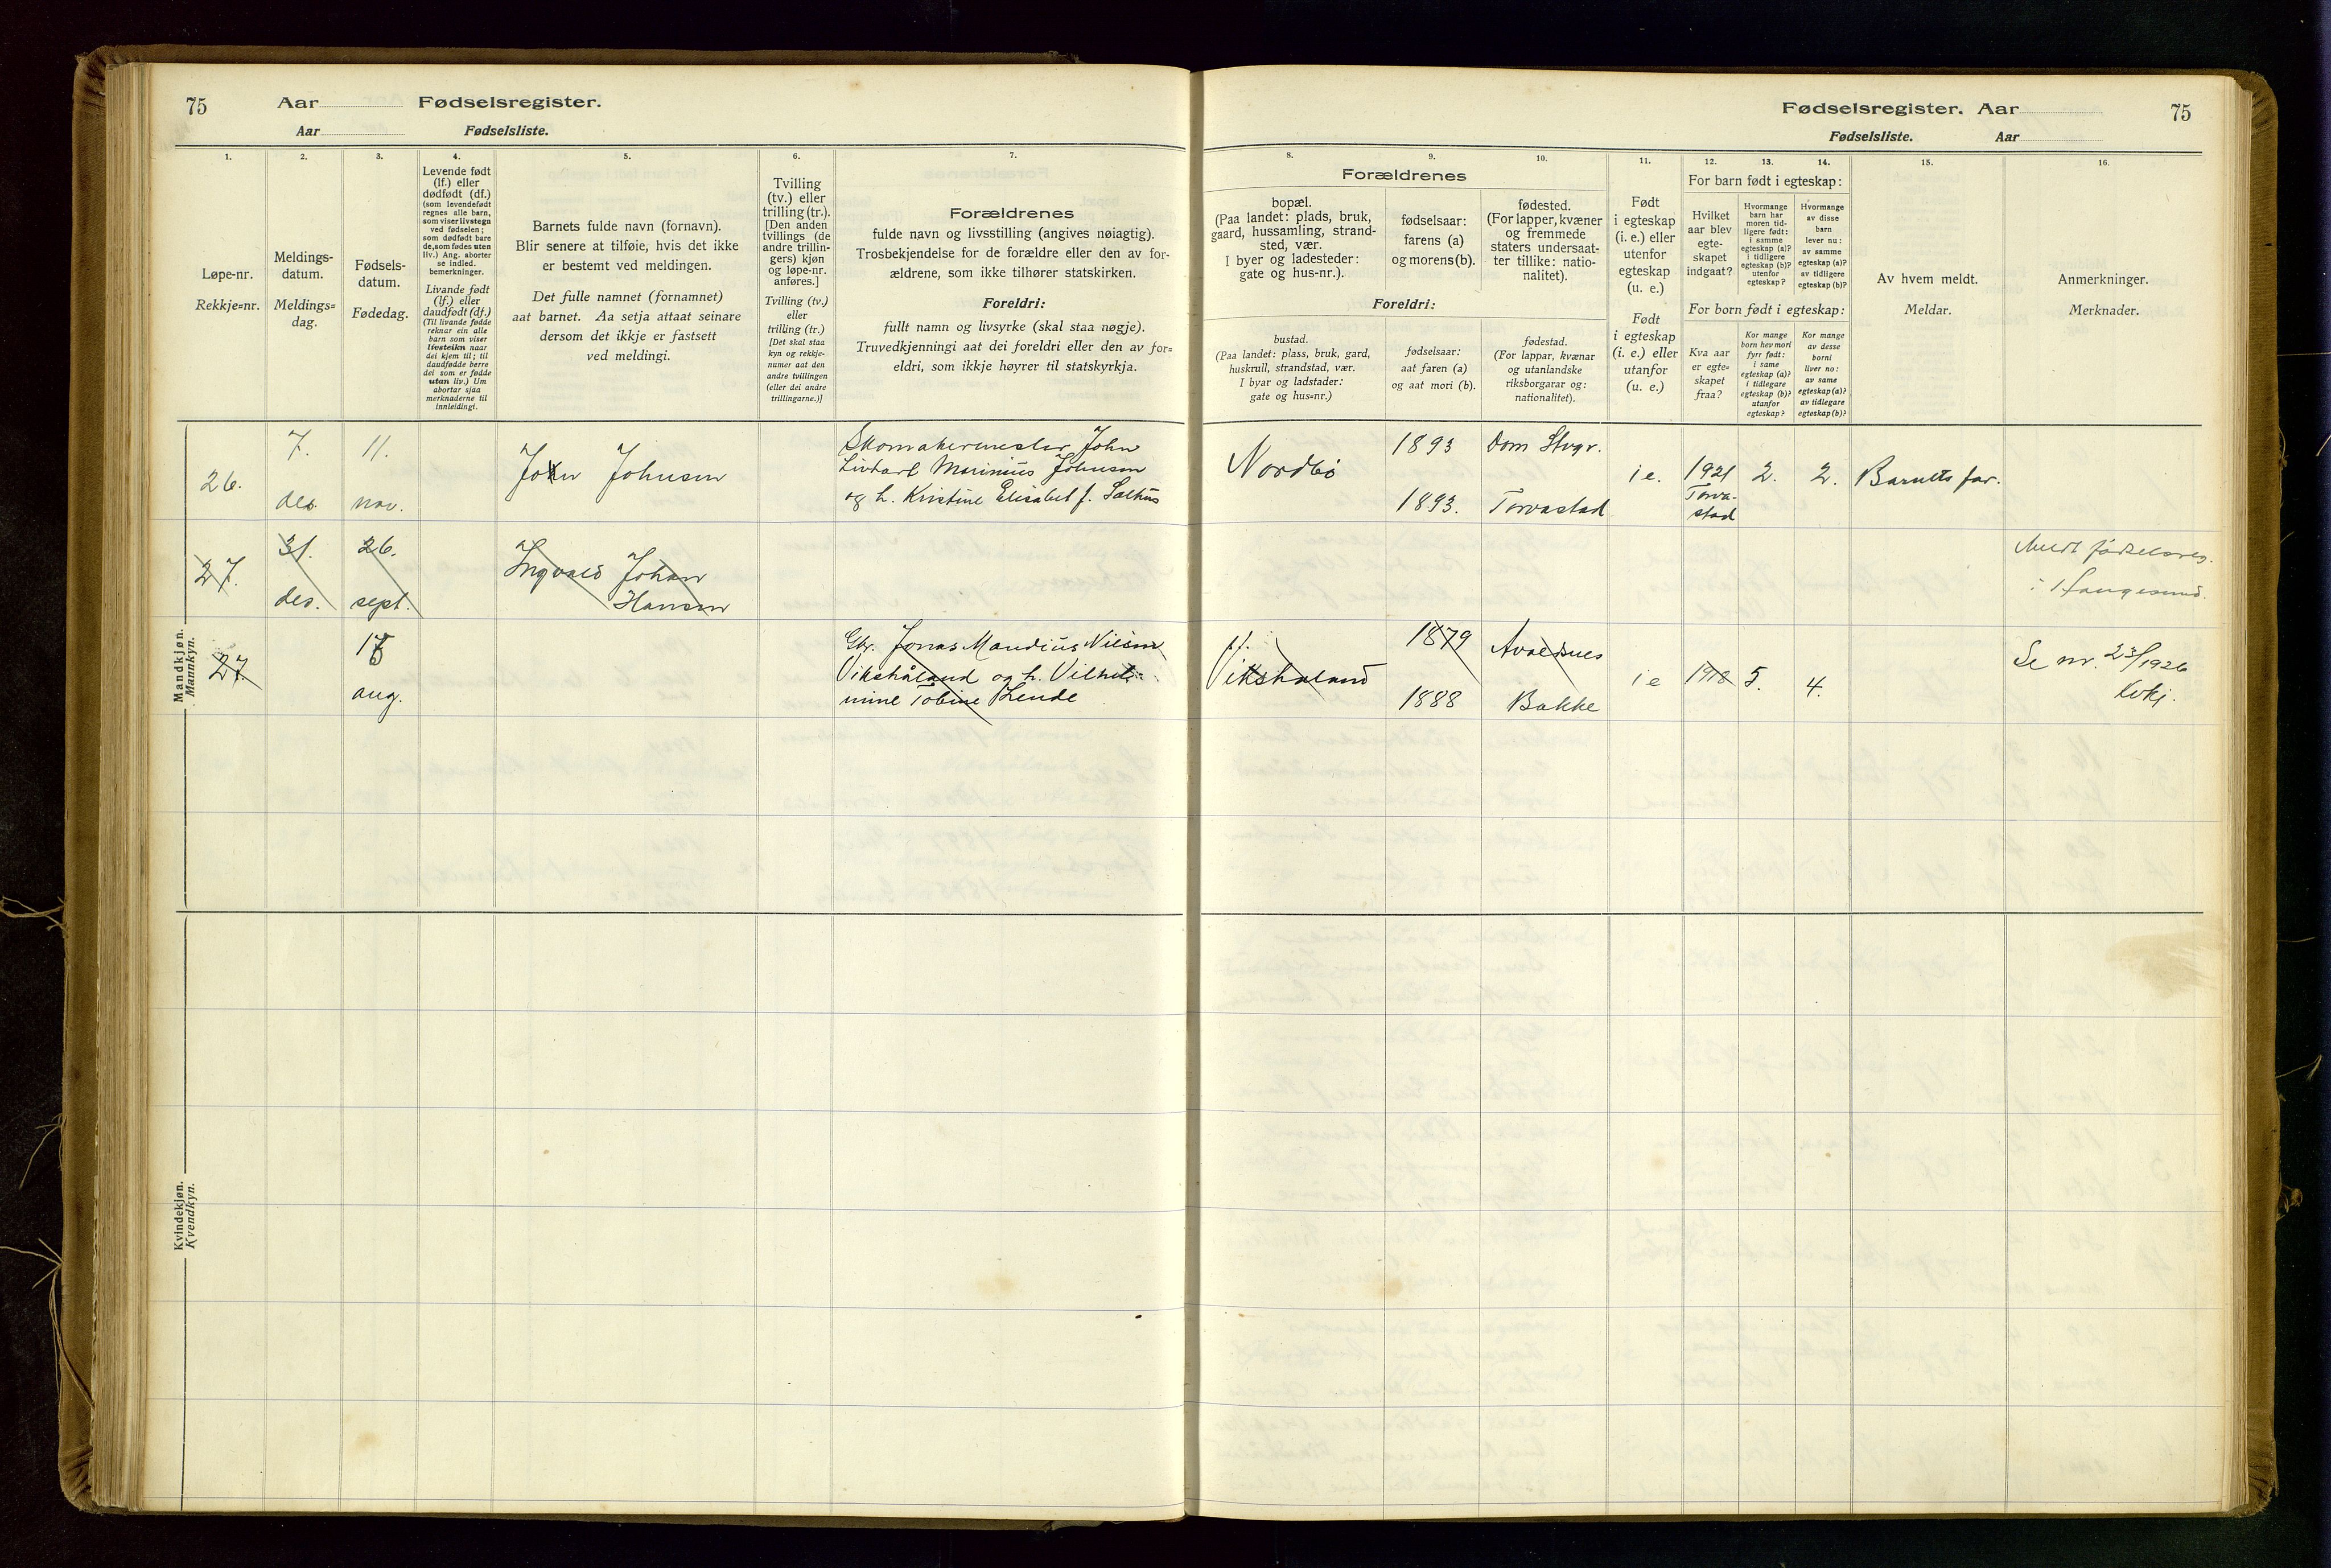 75
Aar Fødselsregister.
Aar Fødselsliste.
1.
Løpe-nr.
Rekkje=nr.
2.
Meldings-
datum.
Meldings=
dag.
3.
Fødsels-
datum.
Fødedag.
4.
Levende født
(lf.) eller
dødfødt (df.)
(som levendefødt
regnes alle barn,
som viser livstegn
ved fødselen;
som dødfødt bare
de, som fødes uten
liv.) Ang. aborter
se indled.
bemerkninger.
Livande født
(lf.) eller
daudfødt (df.)
(Til livande fødde
reknar ein alle
barn som viser
livsteikn naar
dei kjem til; til
daudfødde berre
dei som er fødde
utan liv.) Um
abortar sjaa
merknaderne til
innleidingi.
5.
Barnets fulde navn (fornavn).
Blir senere at tilføie, hvis det ikke
er bestemt ved meldingen.
Det fulle namnet (fornamnet)
aat barnet. Aa setja attaat seinare
dersom det ikkje er fastsett
ved meldingi.
6.
Tvilling
(tv.) eller
trilling (tr.).
[Den anden
tvillings (de
andre trillin-
gers) kjøn
og løpe-nr.
anføres.]
Tvilling (tv.)
eller
trilling (tr.)
[Det skal staa
kyn og rekkje-
numer aat den
andre tvillingen
(eller dei andre
trillingarne.)]
7.
Forældrenes
fulde navn og livsstilling (angives nøiagtig).
Trosbekjendelse for de forældre eller den av for-
ældrene, som ikke tilhører statskirken.
Foreldri:
fullt namn og livsyrke (skal staa nøgje).
Truvedkjenningi aat dei foreldri eller den av for=
eldri, som ikkje høyrer til statskyrkja.
Mandkjøn.
Mannkyn.
26.
7.
des.
11.
nov.
John Johnsen
Skomakermester John
Marinius Johnsen
og h. Kristine Elisabet f. Salhus
27.
31.
des.
26.
sept.
Ingvald Johan
Hansen
27.
aug.
Gbr. Jonas Mandius Nilsen
Vikshåland og h. Vilhel-
mine Tobine Lende
Kvindekjøn.
Kvendkyn.
Fødselsregister. Aar
75
Fødselsliste. Aar
8.
Forældrenes
bopæl.
(Paa landet: plads, bruk,
gaard, hussamling, strand-
sted, vær.
I byer og ladesteder:
gate og hus-nr.).
9.
fødselsaar:
farens (a)
og morens (b).
10.
fødested.
(For lapper, kvæner
og fremmede
staters undersaat-
ter tillike: natio-
nalitet).
Foreldri:
bustad.
(Paa landet: plass, bruk, gard,
huskrull, strandstad, vær.
I byar og ladstader:
gate og hus=nr.)
fødselsaar:
aat faren (a)
og aat mori (b).
fødestad.
(For lappar, kvænar
og utanlandske
riksborgarar og:
nationalitet).
11.
Født
i egteskap
(i. e.) eller
utenfor
egteskap
(u. e.)
Født
i egteskap
(i. e.) eller
utanfor
(u. e.)
12.
13.
14.
For barn født i egteskap:
Hvilket
aar blev
egte-
skapet
indgaat?
Hvormange
barn har
moren tid-
ligere født:
i samme
egteskap (a)?
i tidligere
egteskap (b)?
utenfor
egteskap?
Hvormange
av disse
barn
lever nu:
av samme
egteskap (a)?
av tidligere
egteskap (b)?
For born født i egteskap:
Kva aar
er egte=
skapet
fraa?
Kor mange
born hev mori
fyrr født:
i same
egteskap (a)?
i tidlegare
egteskap (b)?
utanfor
egteskap?
Kor mange
av desse
borni
liver no:
av same
egteskap (a)?
av tidlegare
egteskap (b)?
15.
Av hvem meldt.
Meldar.
16.
Anmerkninger.
Merknader.
Nordbø
1893
1893.
Dom Stvgr.
Torvastad
i e.
1921
Torva-
stad
2.
2.
Barnets far.
fødselsreg.
i Haugesund.
Vikshåland
1879
1888
Avaldsnes
Bakke
i e
1918
5.
4.
Se nr. 23/1926